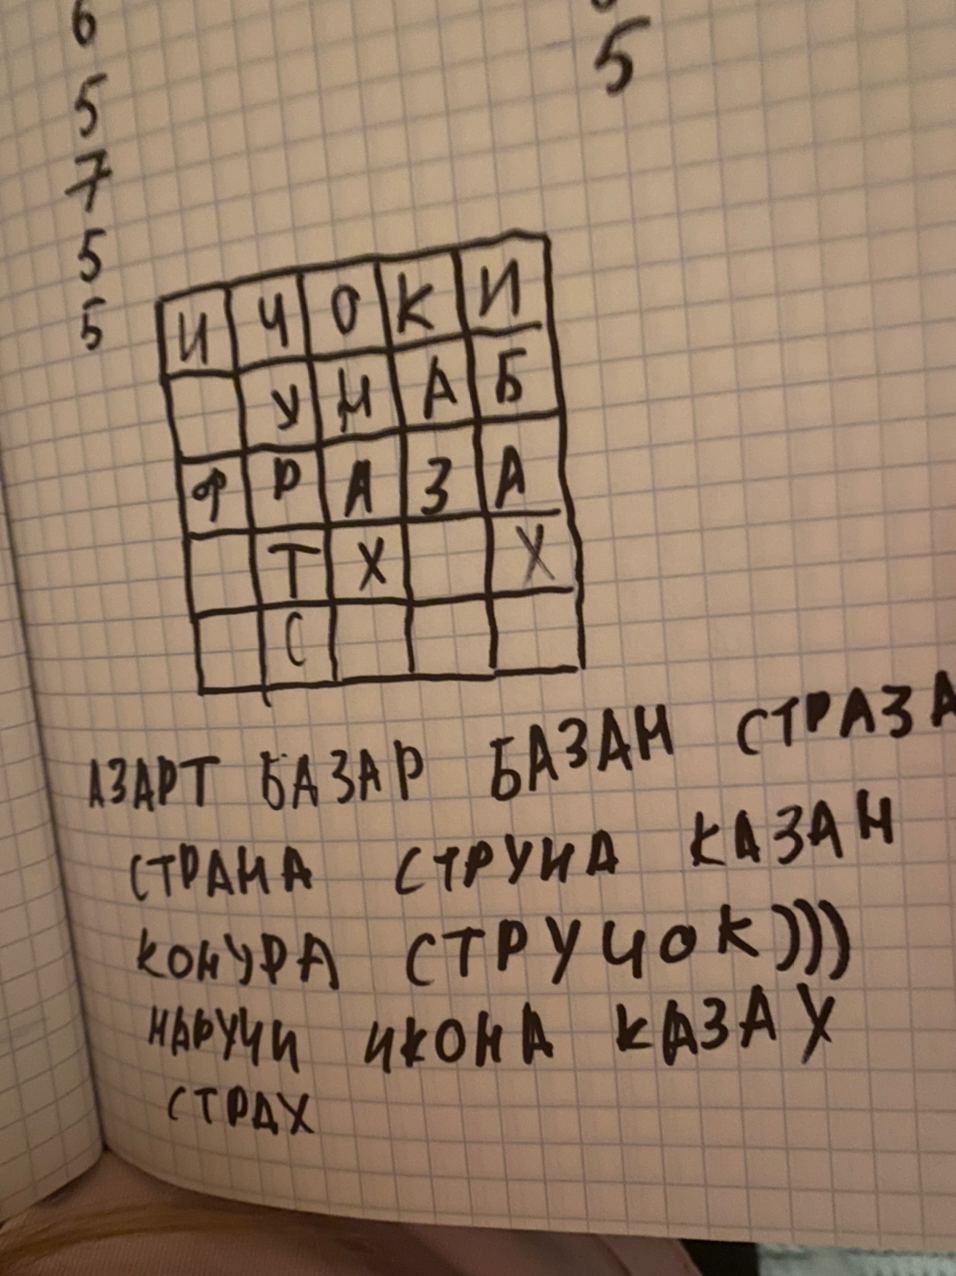 6
5
5
7
5
5
И Ч О К И
У Н А Б
Ф Р А З А
Т Х Х
С
АЗАРТ БАЗАР БАЗАН СТРАЗА
СТРАНА СТРУНА КАЗАН
КОНУРА СТРУЧОК)))
НАРУЧИ ИКОНА КАЗАХ
СТРАХ